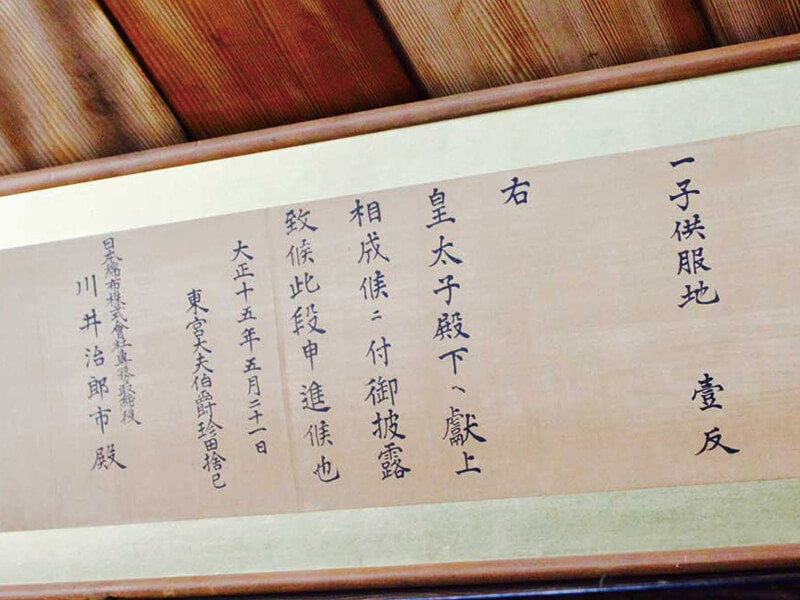 一子供服地 壹反
右
皇太子殿下ヘ獻上
相成候ニ付御披露
致候此段申進候也
大正十五年五月二十一日
東宮大夫伯爵珍田捨巳
日本綿布株式會社專務取締役
川井治郎市殿